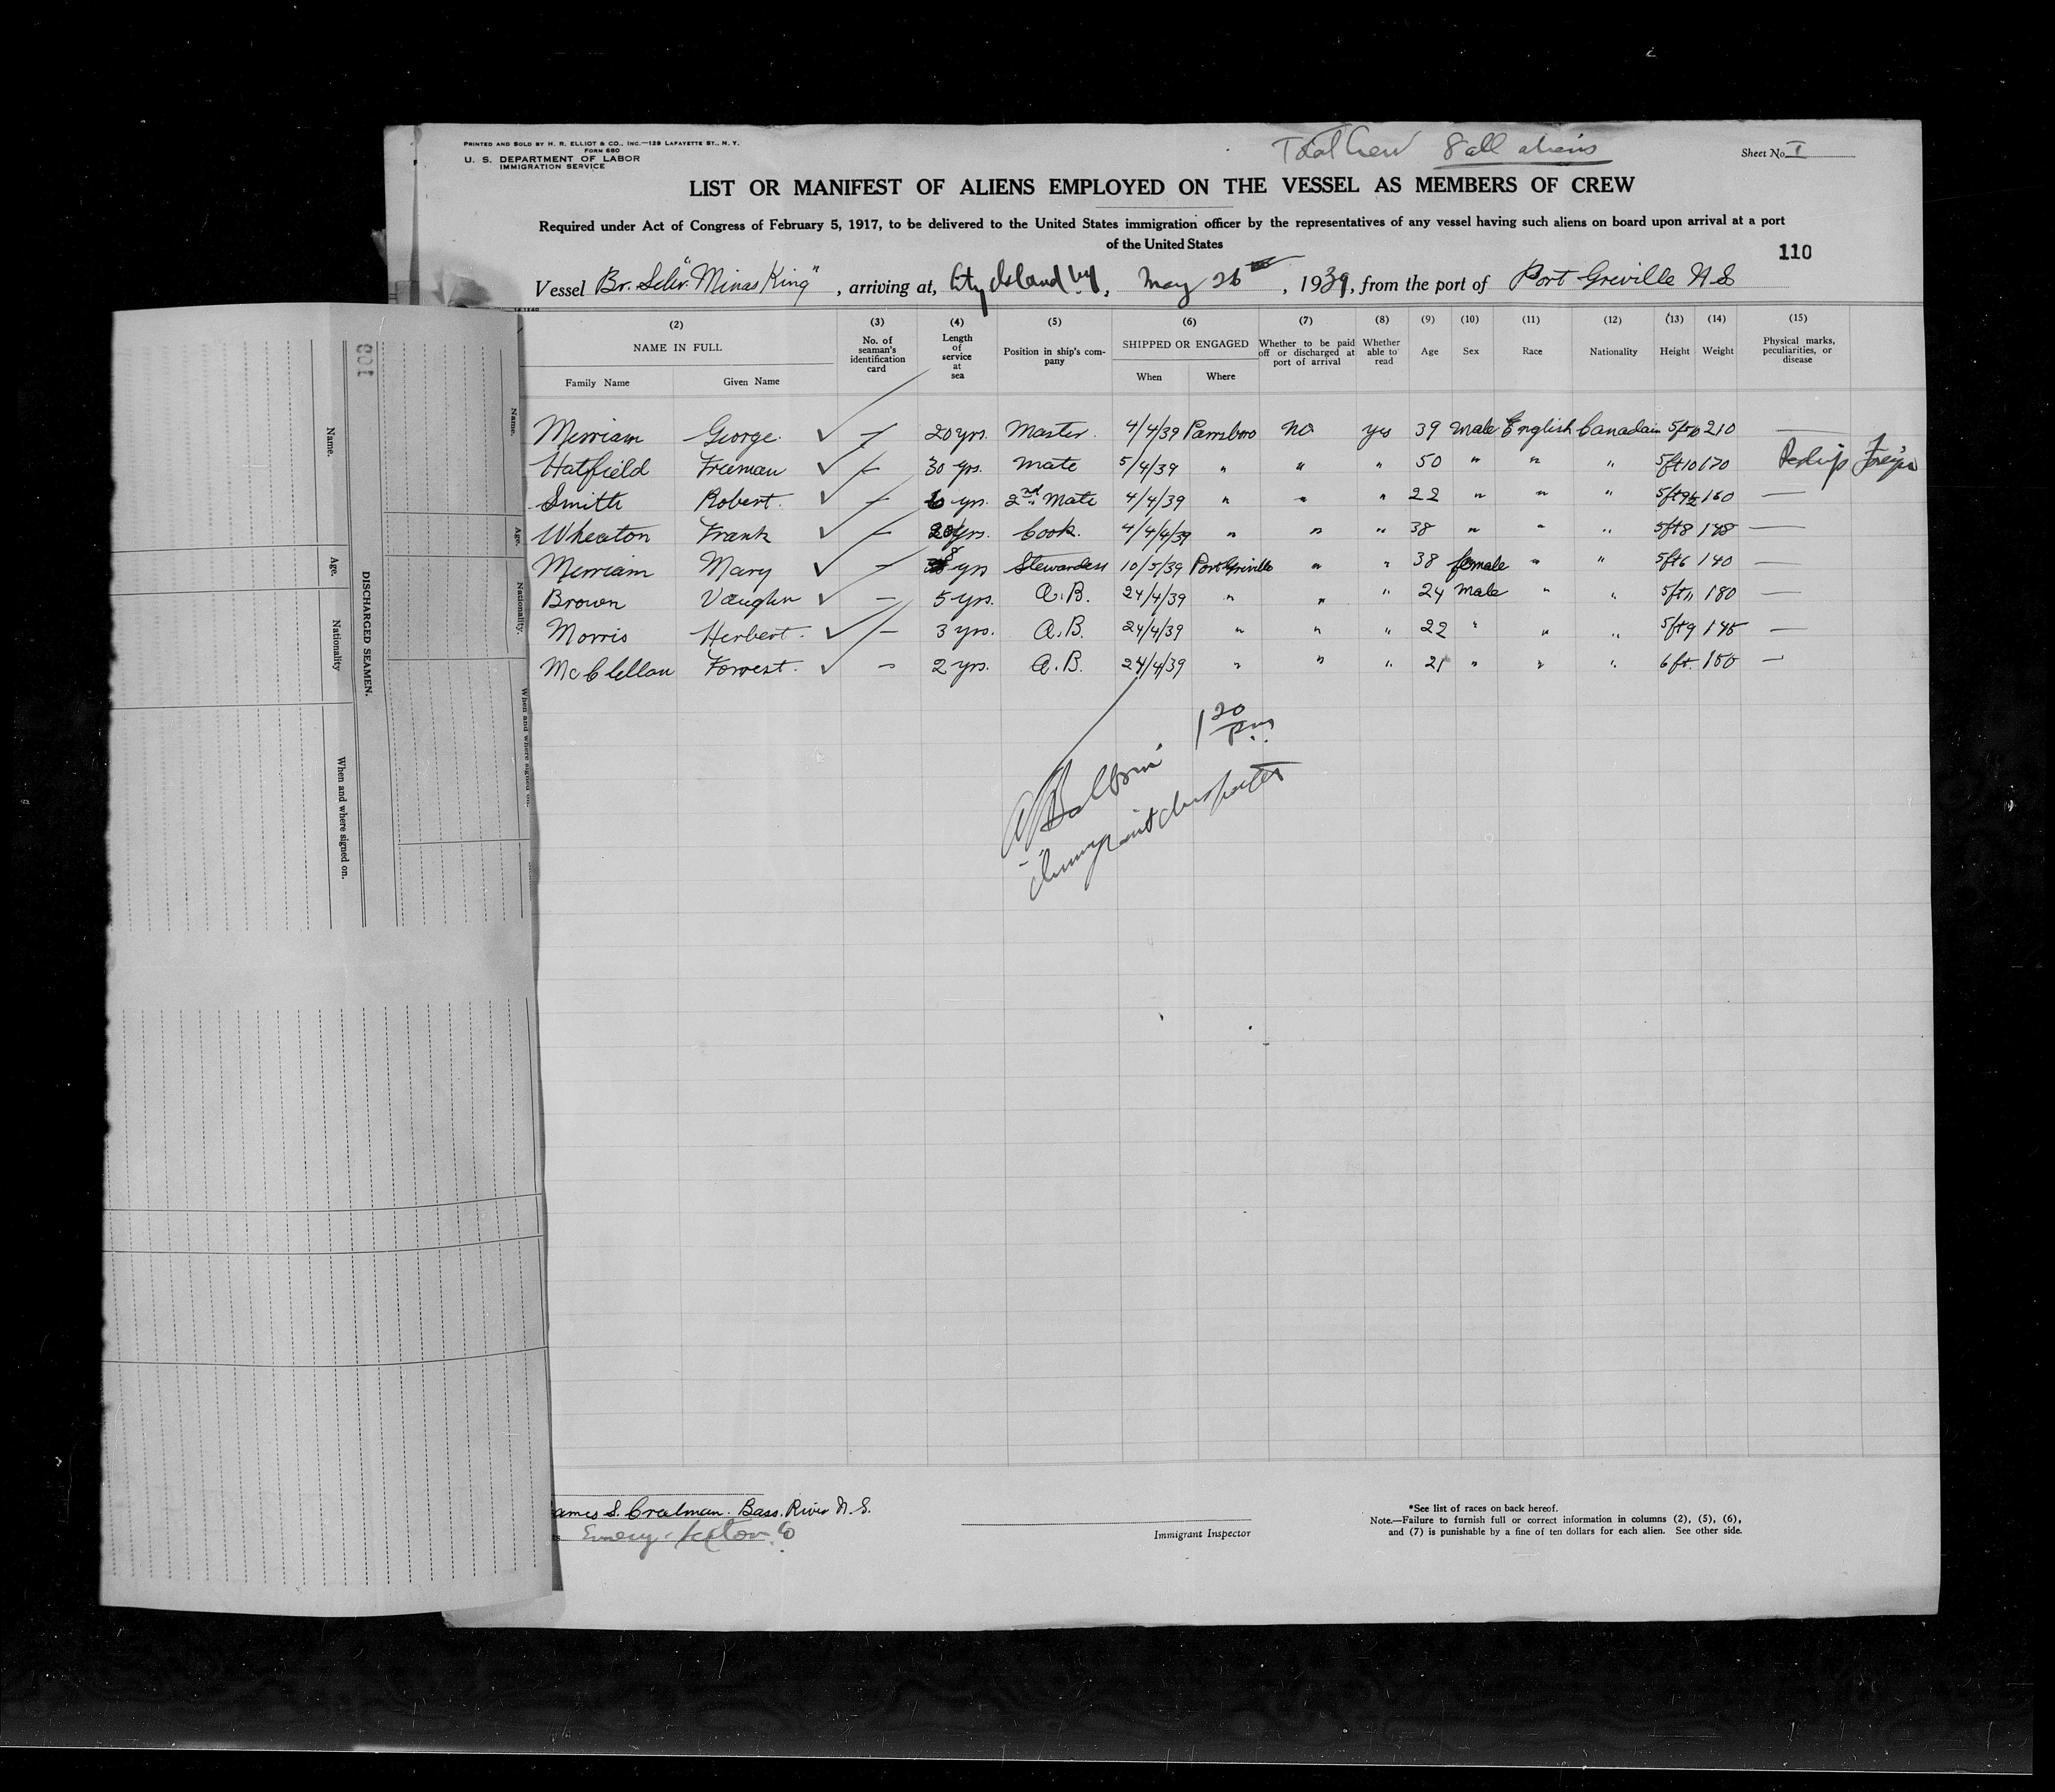 PRINTED AND SOLD BY H. R. ELLIOT & CO., INC.—129 LAFAYETTE ST., N. Y.
FORM 680
U. S. DEPARTMENT OF LABOR
IMMIGRATION SERVICE
Total Crew 8 all aliens
Sheet No. I
LIST OR MANIFEST OF ALIENS EMPLOYED ON THE VESSEL AS MEMBERS OF CREW
Required under Act of Congress of February 5, 1917, to be delivered to the United States immigration officer by the representatives of any vessel having such aliens on board upon arrival at a port
of the United States
110
Vessel Br. Schr. "Minas King", arriving at, City Island NY, May 26th, 1939, from the port of Port Greville N.S
(2) (3) (4) (5) (6) (7) (8) (9) (10) (11) (12) (13) (14) (15)
NAME IN FULL
Family Name Given Name
No. of seaman's identification card
Length of service at sea
Position in ship's company
SHIPPED OR ENGAGED
When Where
Whether to be paid off or discharged at port of arrival
Whether able to read
Age Sex Race Nationality Height Weight
Physical marks, peculiarities, or disease
Merriam George. ✓ — 20 yrs. Master. 4/4/39 Parrsboro No yes 39 Male English Canadain 5ft10 210 —
Hatfield Freeman ✓ — 30 yrs. Mate 5/4/39 " " " 50 " " " 5ft10 170 Foreign
Smith Robert. ✓ — 6 yrs. 2nd Mate 4/4/39 " " " 22 " " " 5ft9½ 160 —
Wheaton Frank ✓ — yrs. Cook. 4/4/4/39 " " " 38 " " " 5ft8 148 —
Merriam Mary ✓ — 8 yrs Stewardess 10/5/39 Port Greville " " 38 female " " 5ft6 140 —
Brown Vaughn ✓ — 5 yrs. A.B. 24/4/39 " " " 24 Male " " 5ft11 180 —
Morris Herbert. ✓ — 3 yrs. A.B. 24/4/39 " " " 22 " " " 5ft9 145 —
McClellan Forrest. ✓ — 2 yrs. A.B. 24/4/39 " " " 21 " " " 6 ft. 150 —
1 20 pm
Immigrant Inspector
James S. Creelman. Bass. River N.S.
Immigrant Inspector
*See list of races on back hereof.
Note.—Failure to furnish full or correct information in columns (2), (5), (6),
and (7) is punishable by a fine of ten dollars for each alien. See other side.
108
DISCHARGED SEAMEN.
Name.
Age.
Nationality
When and where signed on.
Name.
Age.
Nationality.
When and where signed on.